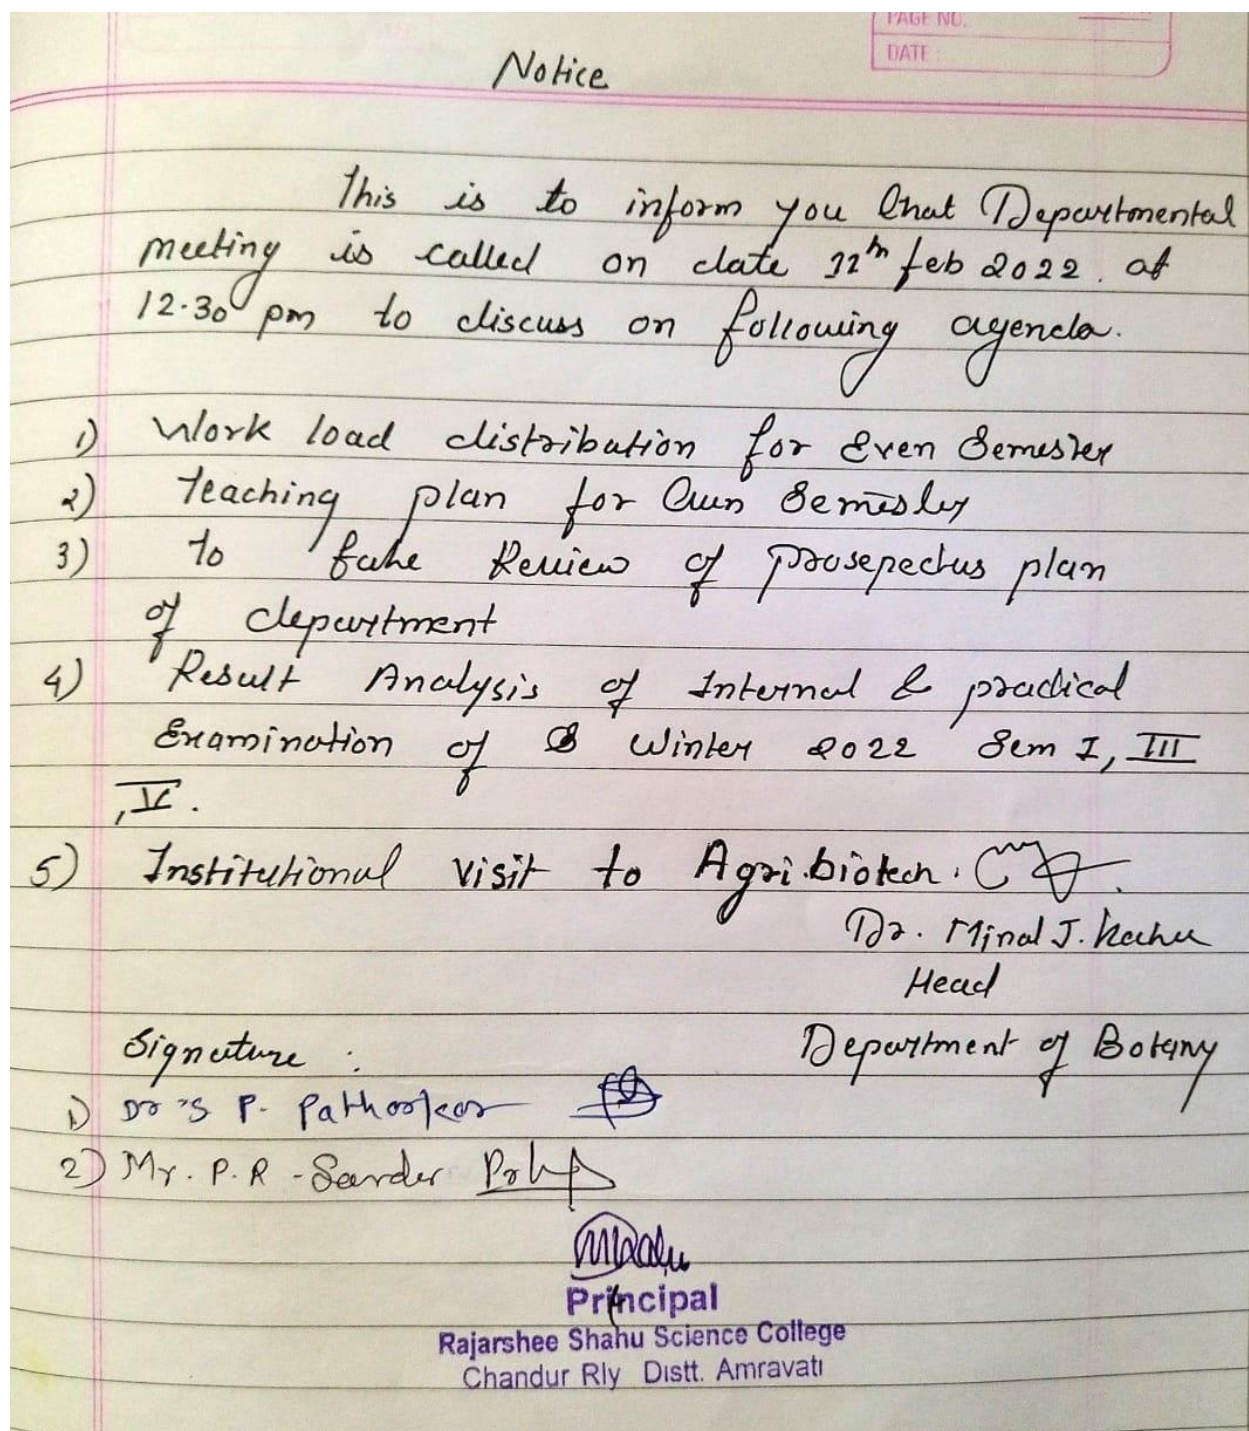 PAGE NO.
DATE :
Notice
This is to inform you that Departmental
meeting is called on date 12th feb 2022. at
12.30 pm to discuss on following agenda.
1) Work load distribution for Even Semester
2) Teaching plan for Even Semester
3) to take Review of prosepectus plan
of department
4) Result Analysis of Internal & practical
Examination of Winter 2022 Sem I, III
, V.
5) Institutional visit to Agri.biotech.
Dr. Minal J. 
Head
Signature :
Department of Botany
1) Dr S P. Pathorkar
2) Mr. P.R - Sarder
Principal
Rajarshee Shahu Science College
Chandur Rly Distt. Amravati